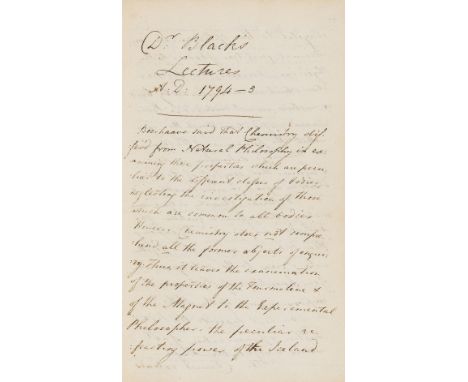 Dr Blacks
Lectures
A: D: 1794-3
Boerhaave said that Chemistry dif
fered from Natural Philosophy in ex
amining those properties which are pecu
liar to the different classes of bodies
neglecting the investigation of those
which are common to all bodies
However Chemistry does not compre
hend all the former objects of enqui
ry. Thus it leaves the examination
of the properties of the Tourmaline &
of the Magnet to the Experimental
Philosopher. the peculiar re
fracting power of the Iceland